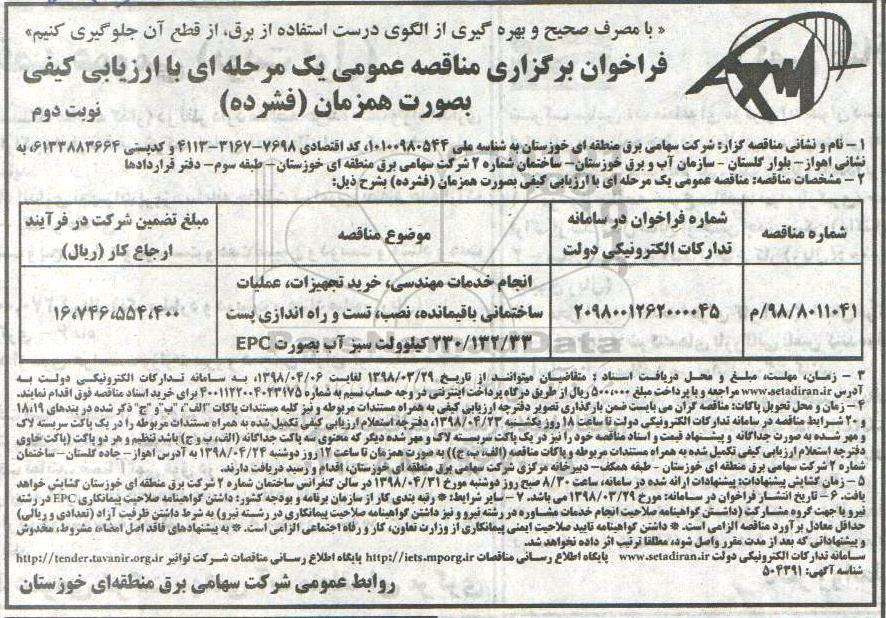 « با مصرف صحیح و بهره گیری از الگوی درست استفاده از برق، از قطع آن جلوگیری کنیم»
فراخوان برگزاری مناقصه عمومی یک مرحله ای با ارزیابی کیفی
بصورت همزمان (فشرده)
نوبت دوم
۱ – نام و نشانی مناقصه گزار: شرکت سهامی برق منطقه ای خوزستان به شناسه ملی ۱۰۱۰۰۹۸۰۵۴۴، کد اقتصادی ۷۶۹۸-۳۱۶۷-۴۱۱۳ و کدپستی ۶۱۳۳۸۸۳۶۶۴، به
نشانی اهواز – بلوار گلستان – سازمان آب و برق خوزستان– ساختمان شماره ۲ شرکت سهامی برق منطقه ای خوزستان– طبقه سوم– دفتر قراردادها
۲ – مشخصات مناقصه: مناقصه عمومی یک مرحله ای با ارزیابی کیفی بصورت همزمان (فشرده) بشرح ذیل:
شماره مناقصه
شماره فراخوان در سامانه تدارکات الکترونیکی دولت
موضوع مناقصه
مبلغ تضمین شرکت در فرآیند ارجاع کار (ریال)
۹۸/۸۰۱۱۰۴۱/م
۲۰۹۸۰۰۱۲۶۲۰۰۰۰۴۵
انجام خدمات مهندسی، خرید تجهیزات، عملیات
ساختمانی باقیمانده، نصب، تست و راه اندازی پست
۲۳۰/۱۳۲/۳۳ کیلوولت سبز آب بصورت EPC
۱۶،۷۴۶،۵۵۴،۴۰۰
۳ – زمان، مهلت، مبلغ و محل دریافت اسناد : متقاضیان میتوانند از تاریخ ۱۳۹۸/۰۳/۲۹ لغایت ۱۳۹۸/۰۴/۰۶، به سامانه تدارکات الکترونیکی دولت به
آدرس www.setadiran.ir مراجعه و با پرداخت مبلغ ۵۰۰،۰۰۰ ریال از طریق درگاه پرداخت اینترنتی در وجه حساب نسیم به شماره ۴۰۰۱۱۲۲۰۰۴۰۲۳۱۷۵ برای خرید اسناد مناقصه فوق اقدام نمایند.
۴ – زمان و محل تحویل پاکات: مناقصه گران می بایست ضمن بارگذاری تصویر دفترچه ارزیابی کیفی به همراه مستندات مربوطه و نیز کلیه مستندات پاکات "الف"، "ب" و "ج" ذکر شده در بندهای ۱۸،۱۹
و ۲۰ شرایط مناقصه در سامانه تدارکات الکترونیکی دولت تا ساعت ۱۸ روز یکشنبه ۱۳۹۸/۰۴/۲۳، دفترچه استعلام ارزیابی کیفی تکمیل شده به همراه مستندات مربوطه را در یک پاکت سربسته لاک
و مهر شده به صورت جداگانه و پیشنهاد قیمت و اسناد مناقصه خود را نیز در یک پاکت سربسته لاک و مهر شده دیگر که محتوی سه پاکت جداگانه (الف، ب و ج) باشد تنظیم و هر دو پاکت (پاکت حاوی
دفترچه استعلام ارزیابی کیفی تکمیل شده به همراه مستندات مربوطه و پاکات مناقصه (الف، ب، ج)) به صورت همزمان تا ساعت ۱۲ روز دوشنبه ۱۳۹۸/۰۴/۲۴ به آدرس اهواز– جاده گلستان– ساختمان
شماره ۲ شرکت سهامی برق منطقه ای خوزستان – طبقه همکف– دبیرخانه مرکزی شرکت سهامی برق منطقه ای خوزستان، اقدام و رسید دریافت دارند.
۵ – زمان گشایش پیشنهادات: پیشنهادات ارائه شده در سامانه، ساعت ۸/۳۰ صبح روز دوشنبه مورخ ۱۳۹۸/۰۴/۳۱ در سالن کنفرانس ساختمان شماره ۲ شرکت برق منطقه ای خوزستان گشایش خواهد
یافت. ۶ – تاریخ انتشار فراخوان در سامانه: مورخ ۱۳۹۸/۰۳/۲۹ می باشد. ۷ – سایر شرایط: * رتبه بندی کار از سازمان برنامه و بودجه کشور: داشتن گواهینامه صلاحیت پیمانکاری EPC در رشته
نیرو یا جهت گروه مشارکت (داشتن گواهینامه صلاحیت انجام خدمات مشاوره در رشته نیرو و نیز داشتن گواهینامه صلاحیت پیمانکاری در رشته نیرو) به شرط داشتن ظرفیت آزاد (تعدادی و ریالی)
حداقل معادل برآورد مناقصه الزامی است. * داشتن گواهینامه تایید صلاحیت ایمنی پیمانکاری از وزارت تعاون، کار و رفاه اجتماعی الزامی است. * به پیشنهادهای فاقد اصل امضاء، مشروط، مخدوش
و پیشنهاداتی که بعد از مدت مقرر واصل شود، مطلقا ترتیب اثر داده نخواهد شد.
سامانه تدارکات الکترونیکی دولت www.setadiran.ir پایگاه اطلاع رسانی مناقصات http://iets.mporg.ir پایگاه اطلاع رسانی مناقصات شرکت توانیر http://tender.tavanir.org.ir
شناسه آگهی: ۵۰۴۳۹۱
روابط عمومی شرکت سهامی برق منطقه‌ای خوزستان